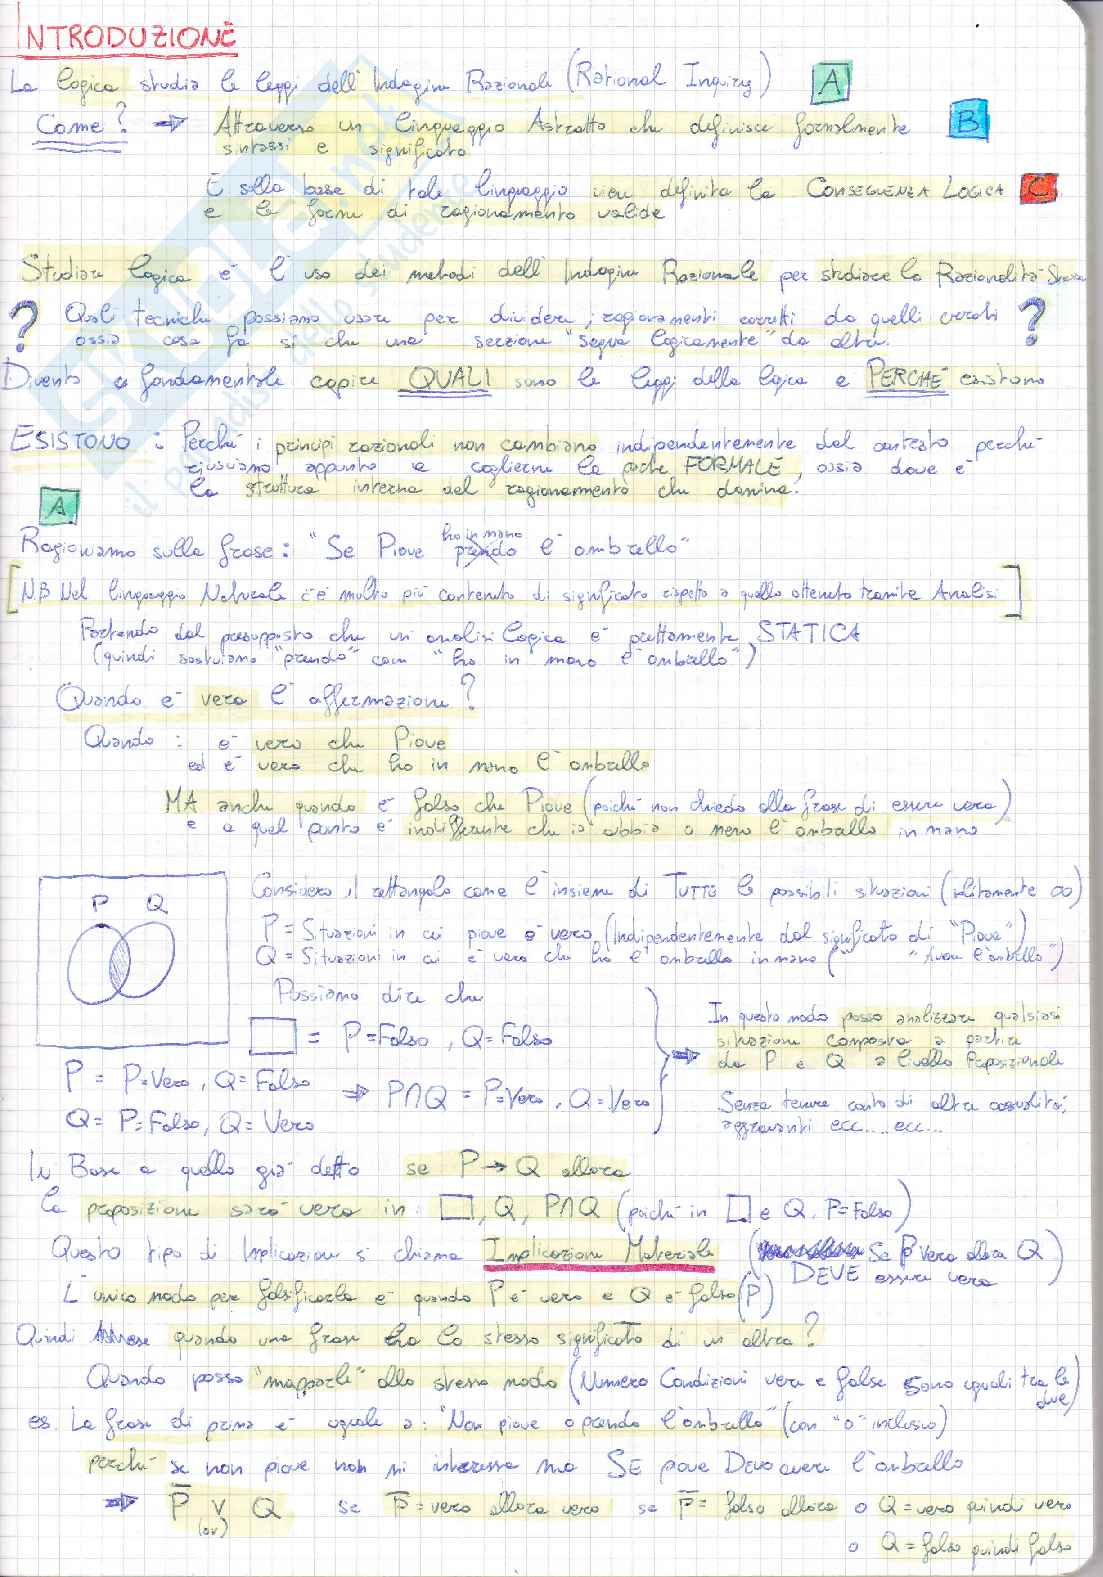 INTRODUZIONE
La logica studia le leggi dell'Indagine Razionale (Rational Inquiry) A
Come? → Attraverso un linguaggio Astratto che definisce formalmente B
sintassi e significato
E sulla base di tale linguaggio viene definita la CONSEGUENZA LOGICA C
e le forme di ragionamento valide
Studiare logica è l'uso dei metodi dell'Indagine Razionale per studiare la Razionalità Stessa
? Quali tecniche possiamo usare per dividere i ragionamenti corretti da quelli errati ?
ossia cosa fa si che una sezione "segua logicamente" da altri.
Diventa fondamentale capire QUALI sono le leggi della logica e PERCHÉ esistono
ESISTONO: Perché i principi razionali non cambiano indipendentemente dal contesto perché
riusciamo appunto a coglierne la parte FORMALE, ossia dove è
la struttura interna del ragionamento che domina.
A
Ragioniamo sulla frase: "Se Piove ho in mano prendo l'ombrello"
[N.B Nel linguaggio Naturale c'è molto più contenuto di significato rispetto a quello ottenuto tramite Analisi]
Partendo dal presupposto che un'analisi Logica è prettamente STATICA
(quindi sostuiamo "prendo" com "ho in mano l'ombrello")
Quando è vera l'affermazione?
Quando: è vero che Piove
ed è vero che ho in mano l'ombrello
MA anche quando è falso che Piove (poiché non chiedo alla frase di essere vera)
e a quel punto è indifferente che io abbia o meno l'ombrello in mano
P Q
Considero il rettangolo come l'insieme di TUTTE le possibili situazioni (∞)
P = Situazioni in cui piove è vero (Indipendentemente dal significato di "Piove")
Q = Situazioni in cui è vero che ho l'ombrello in mano (" "Avere l'ombrello")
Possiamo dire che
□ = P=Falso, Q=Falso
P = P=Vero, Q=Falso ⇒ P∩Q = P=Vero, Q=Vero
Q = P=Falso, Q=Vero
→ In questo modo posso analizzare qualsiasi
situazione composta a partire
da P e Q a livello Proposizionale
Senza tenere conto di altre casualità,
aggravanti ecc... ecc...
In Base a quello già detto se P → Q allora
la proposizione sarà vera in □, Q, P∩Q (poiché in □ e Q. P=Falso)
Questo tipo di Implicazione si chiama Implicazione Materiale (Se P vero allora Q
DEVE essere vero)
L'unico modo per falsificarla è quando P è vero e Q è falso (P)
Quindi quando una frase ha lo stesso significato di un altra?
Quando posso "mapparle" allo stesso modo (Numero Condizioni vere e false sono uguali tra le due)
es. La frase di prima è uguale a: "Non piove o prendo l'ombrello" (con "o" inclusivo)
perché se non piove non mi interessa ma SE piove Devo avere l'ombrello
⇒ P̅ ∨ Q se P̅ = vero allora vero se P̅ = falso allora o Q = vero quindi vero
(or)
o Q = falso quindi falso